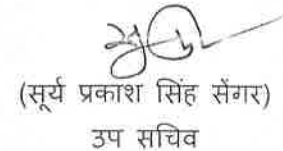 (सूर्य प्रकाश सिंह सेंगर)
उप सचिव